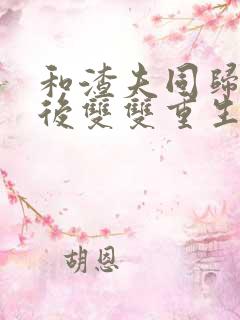 和渣夫同歸
後雙雙重生
胡恩